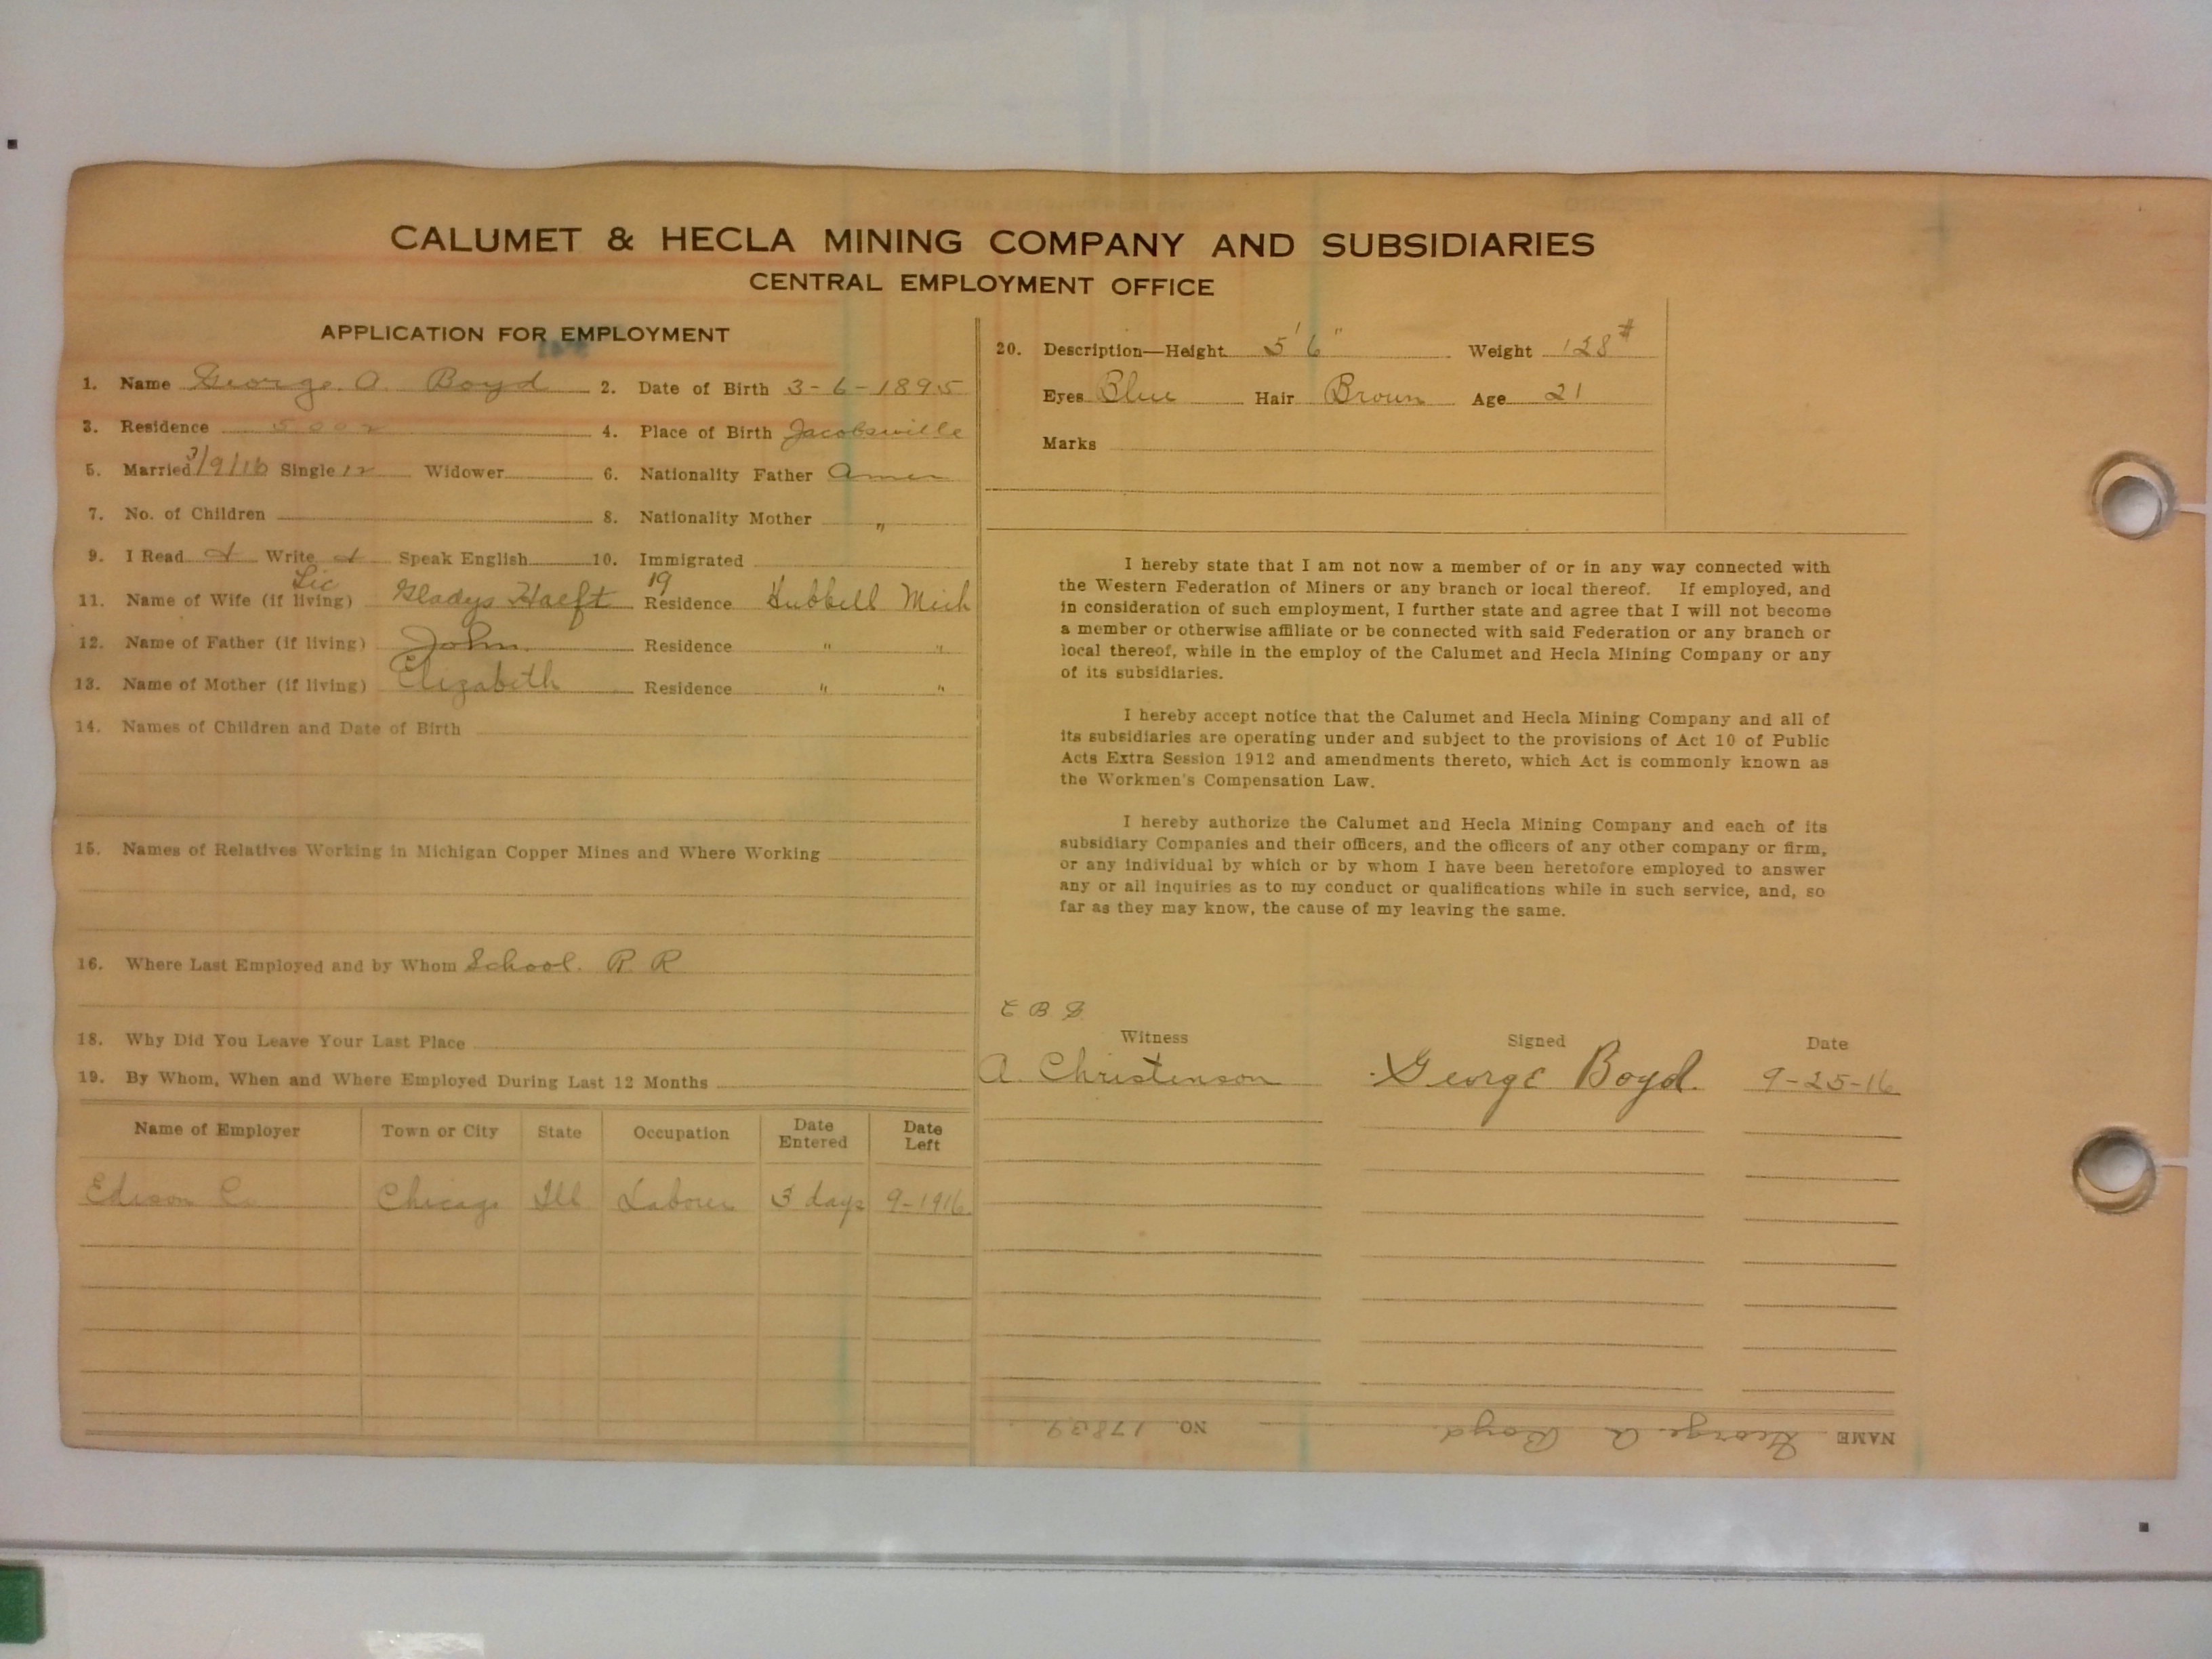 CALUMET & HECLA MINING COMPANY AND SUBSIDIARIES
CENTRAL EMPLOYMENT OFFICE
APPLICATION FOR EMPLOYMENT
1. Name George A. Boyd 2. Date of Birth 3-6-1895
3. Residence 4. Place of Birth Jacobsville
5. Married 9/16 Single Widower 6. Nationality Father Amer
7. No. of Children 8. Nationality Mother "
9. I Read & Write & Speak English 10. Immigrated
Lic 19
11. Name of Wife (if living) Gladys Residence Hubbell Mich
12. Name of Father (if living) John Residence " "
13. Name of Mother (if living) Elizabeth Residence " "
14. Names of Children and Date of Birth
15. Names of Relatives Working in Michigan Copper Mines and Where Working
16. Where Last Employed and by Whom School. R R
18. Why Did You Leave Your Last Place
19. By Whom, When and Where Employed During Last 12 Months
Name of Employer Town or City State Occupation Date Entered Date Left
Edison Co Chicago Ill Laborer 3 days 9-1916
20. Description—Height 5' 6" Weight 128#
Eyes Blue Hair Brown Age 21
Marks
I hereby state that I am not now a member of or in any way connected with
the Western Federation of Miners or any branch or local thereof. If employed, and
in consideration of such employment, I further state and agree that I will not become
a member or otherwise affiliate or be connected with said Federation or any branch or
local thereof, while in the employ of the Calumet and Hecla Mining Company or any
of its subsidiaries.
I hereby accept notice that the Calumet and Hecla Mining Company and all of
its subsidiaries are operating under and subject to the provisions of Act 10 of Public
Acts Extra Session 1912 and amendments thereto, which Act is commonly known as
the Workmen's Compensation Law.
I hereby authorize the Calumet and Hecla Mining Company and each of its
subsidiary Companies and their officers, and the officers of any other company or firm,
or any individual by which or by whom I have been heretofore employed to answer
any or all inquiries as to my conduct or qualifications while in such service, and, so
far as they may know, the cause of my leaving the same.
Witness Signed Date
A. Christenson George Boyd. 9-25-16
NAME George A Boyd. NO. 17839